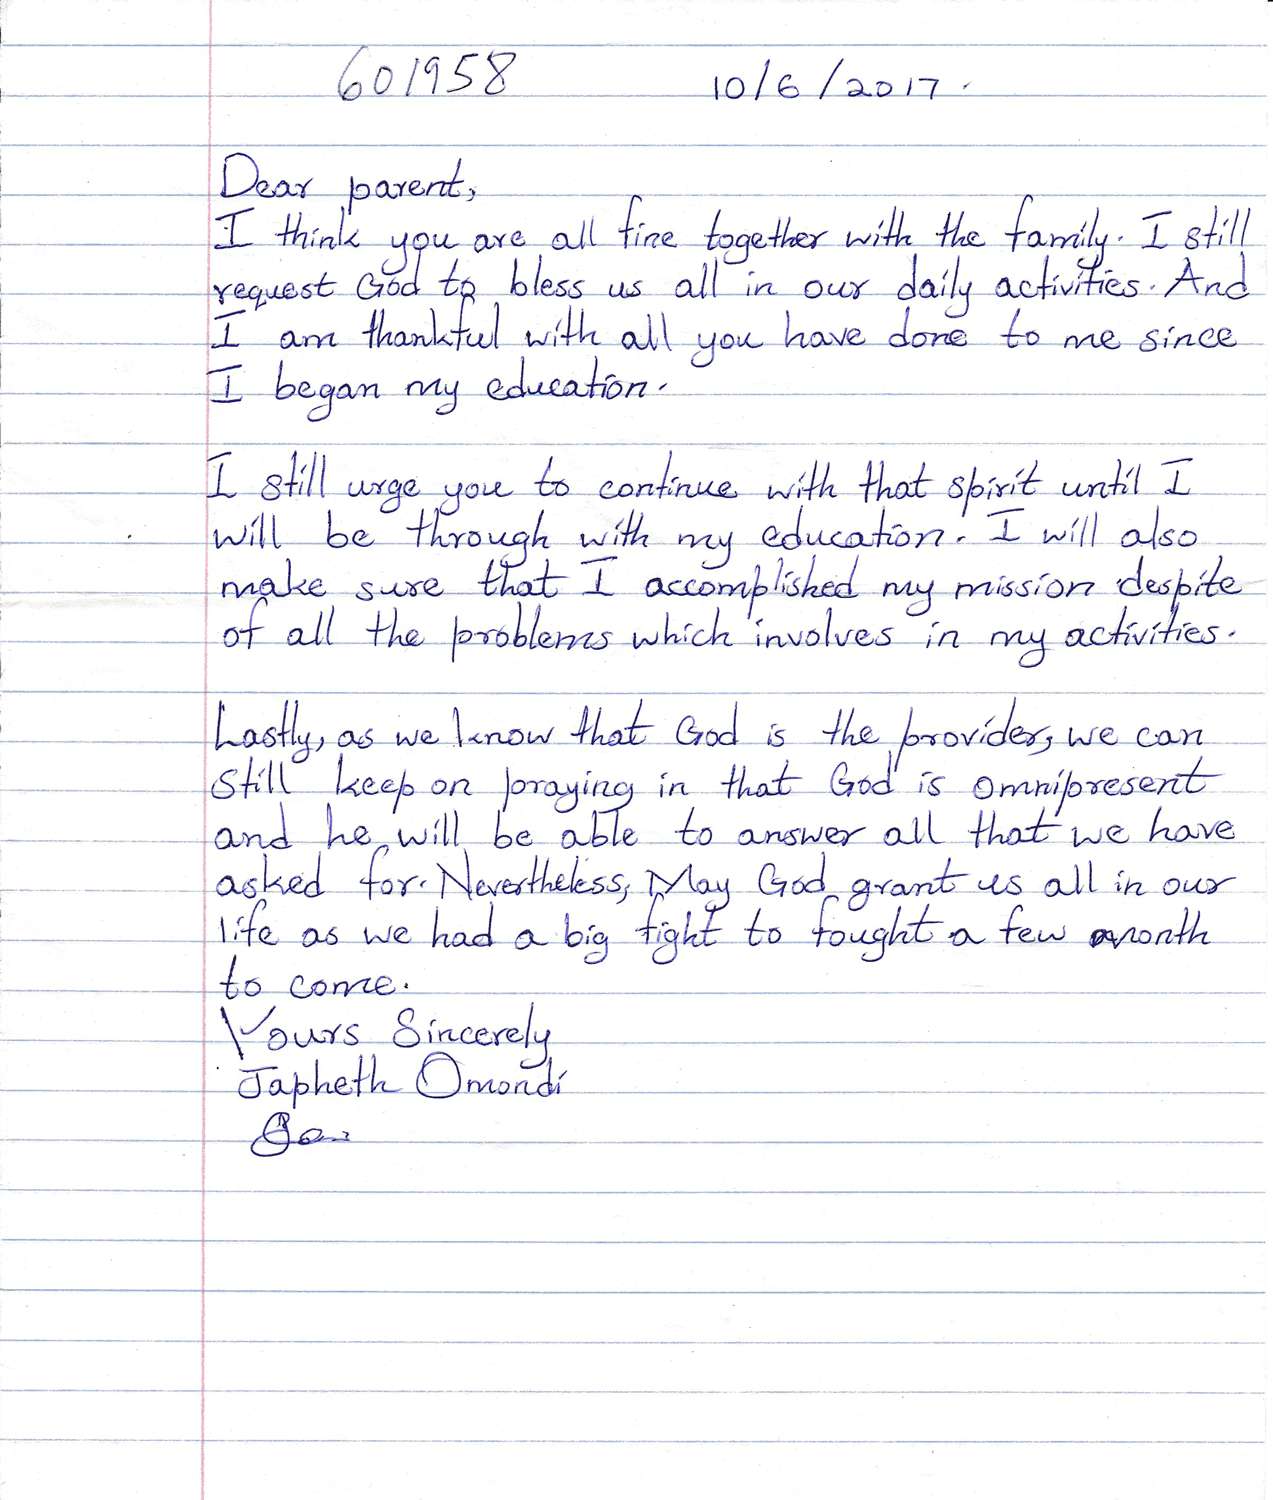 601958 10/6/2017.
Dear parent,
I think you are all fine together with the family. I still
request God to bless us all in our daily activities. And
I am thankful with all you have done to me since
I began my education.
I still urge you to continue with that spirit until I
will be through with my education. I will also
make sure that I accomplished my mission despite
of all the problems which involves in my activities.
Lastly, as we know that God is the provider, we can
still keep on praying in that God is omnipresent
and he will be able to answer all that we have
asked for. Nevertheless, May God grant us all in our
life as we had a big fight to fought a few month
to come.
Yours Sincerely
Japheth Omondi